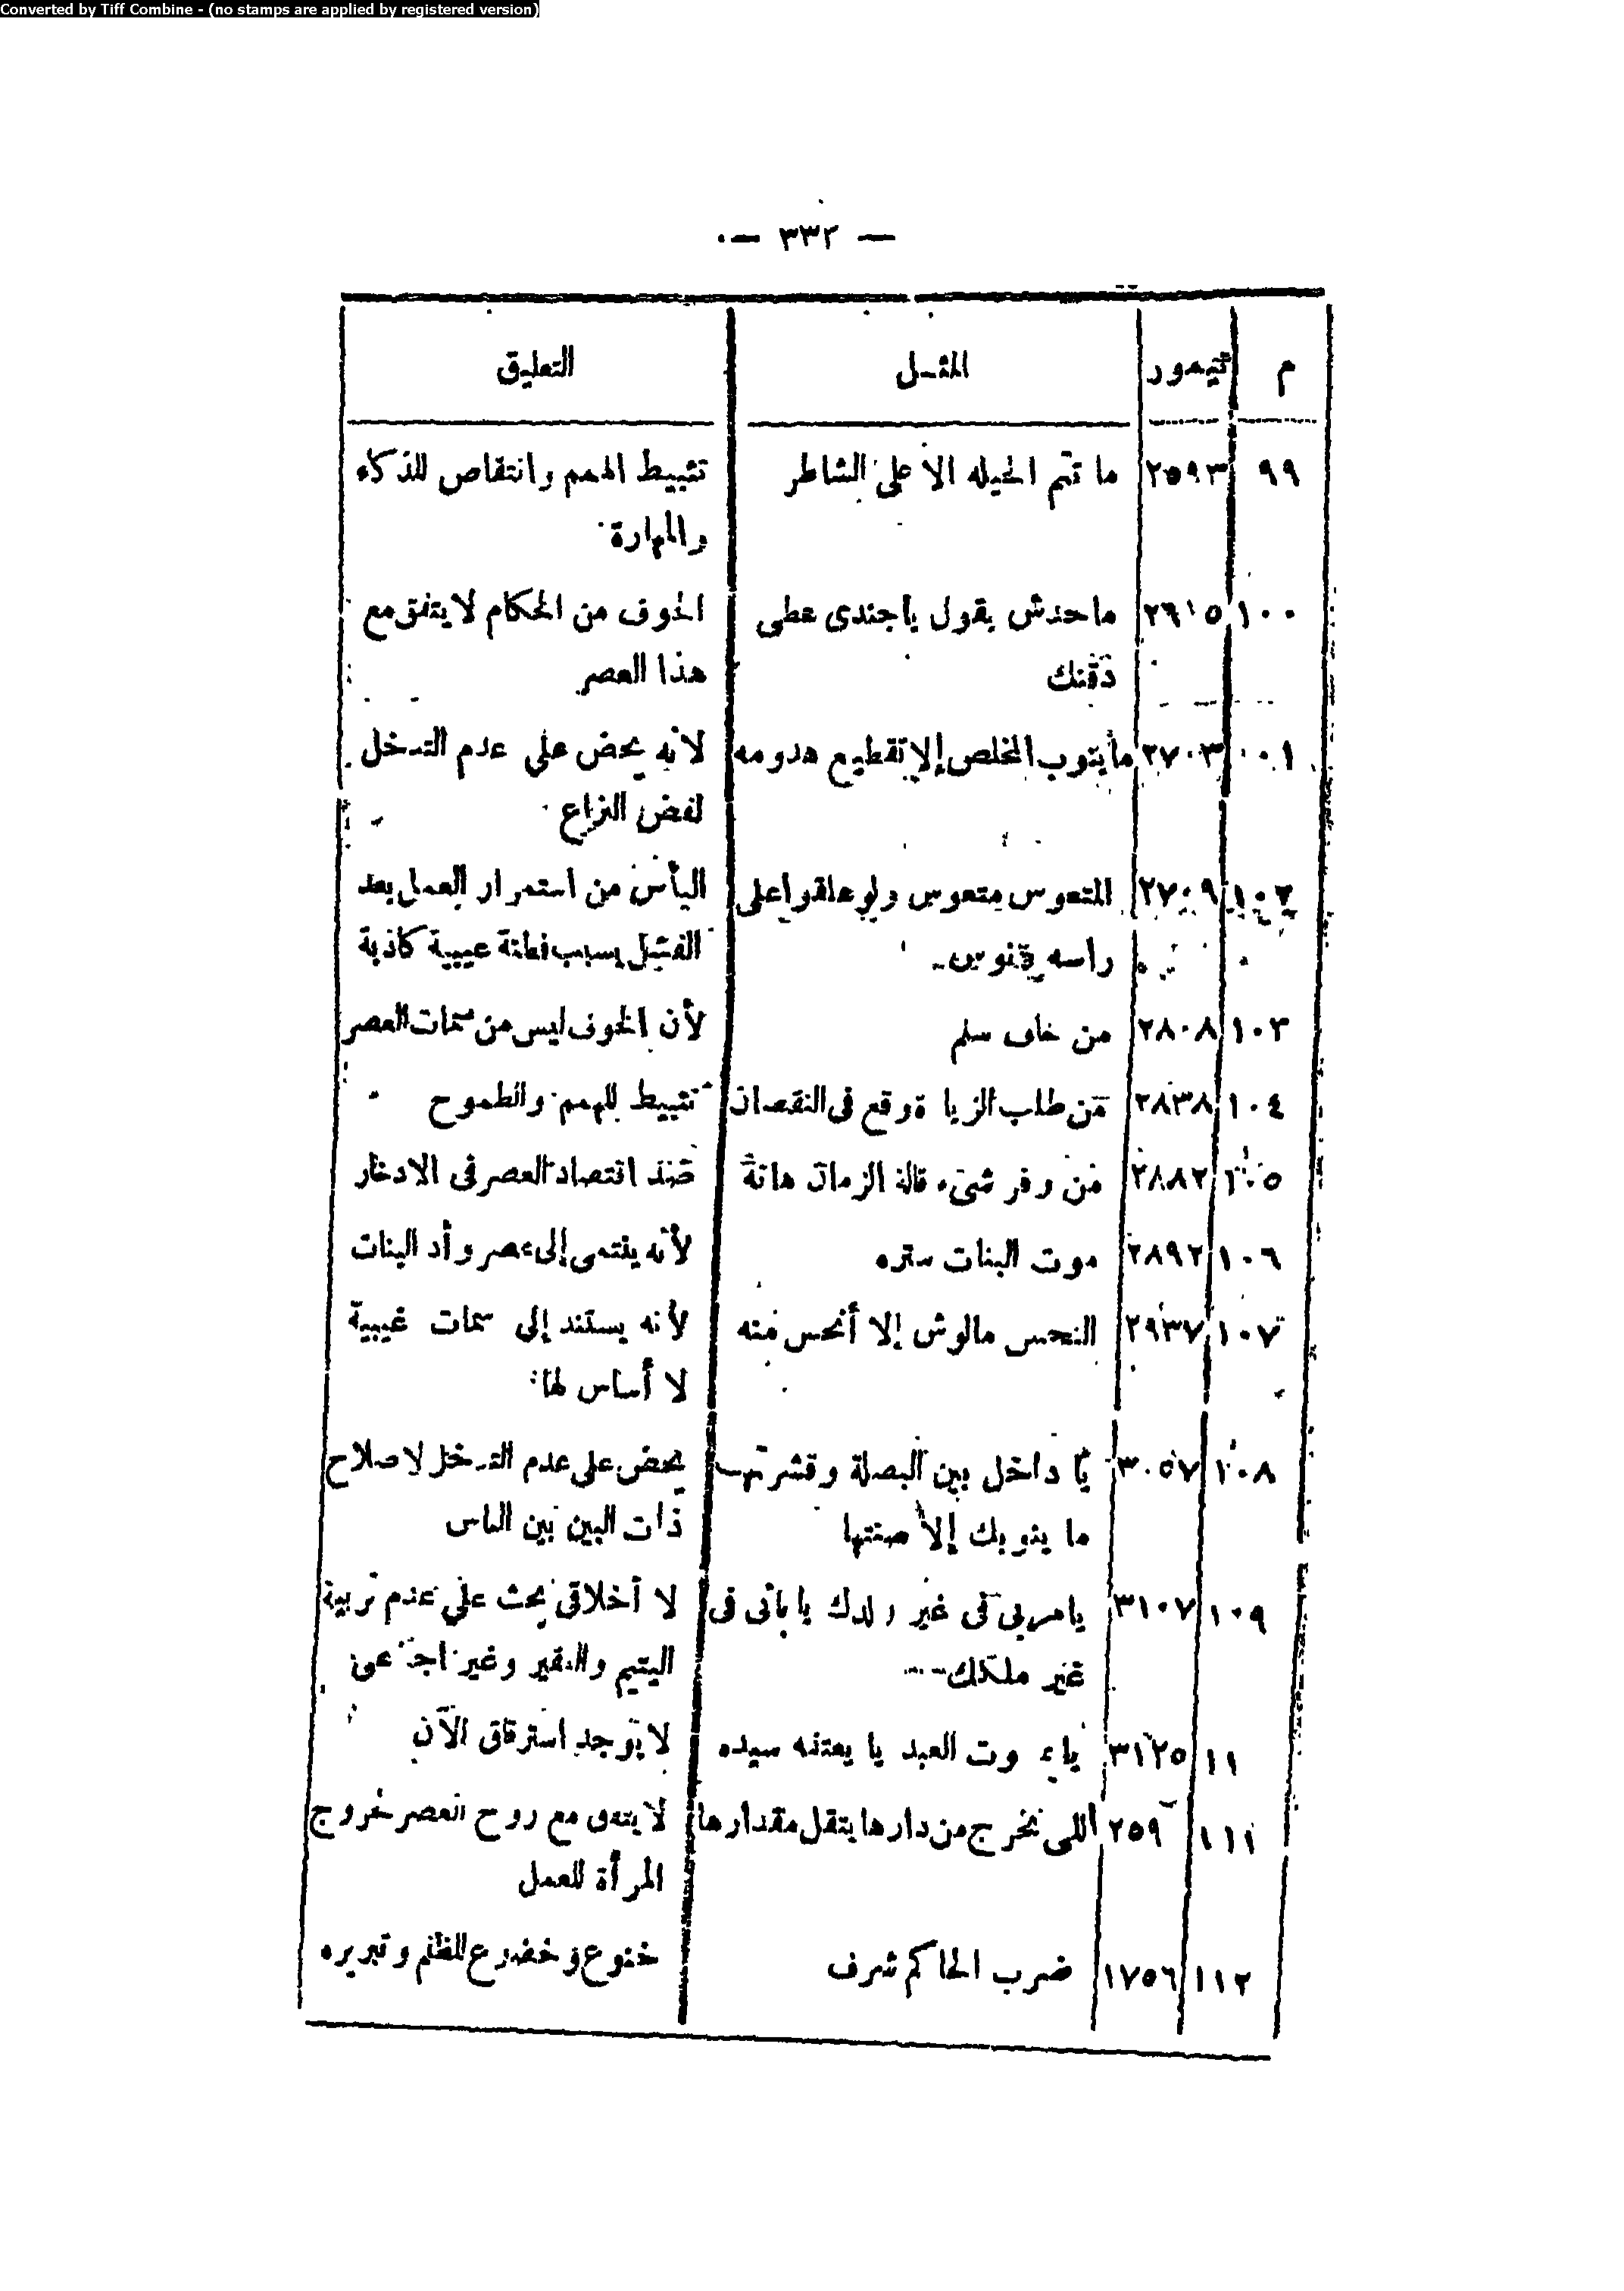 Converted by Tiff Combine - (no stamps are applied by registered version)
— ٣٣٢ —
م تيمور المثـل التعليق
٩٩ ٢٥٩٣ ما تتم الحيله الا على الشاطر تثبيط الهمم وانتقاص للذكاء
والمهارة
١٠٠ ٢٦١٥ ماحدش يقول ياجندى غطى الخوف من الحكام لا يتفق مع
دقنك هذا العصر
١٠١ ٢٧٠٣ ماينوب المخلص إلا تقطيع هدومه لانه يحض على عدم التدخل
لفض النزاع
١٠٢ ٢٧٠٩ المتعوس متعوس ولو علقوا على اليأس من استمرار العمل بعد
راسه فانوس الفشل بسبب غيبية كاذبة
١٠٣ ٢٨٠٨ من خاف سلم لأن الخوف ليس من سمات العصر
١٠٤ ٢٨٣٨ من طلب الزيادة وقع فى النقصان تثبيط للهمم والطموح
١٠٥ ٢٨٨٢ من وفر شىء قاله الزمان هاته ضد اقتصاد العصر فى الادخار
١٠٦ ٢٨٩٢ موت البنات ستره لأنه ينتمى إلى عصر وأد البنات
١٠٧ ٢٩٣٧ النحس مالوش إلا أنحس منه لأنه يستند إلى سمات غيبية
لا أساس لها
١٠٨ ٣٠٥٧ يا داخل بين البصلة وقشرتها يحض على عدم التدخل لاصلاح
ما ينوبك إلا صنتها ذات البين بين الناس
١٠٩ ٣١٠٧ يامربى فى غير ولدك يا بانى فى لا أخلاقى يحث على عدم تربية
غير ملكك اليتيم والفقير وغير اجتماعى
١١ ٣١٢٥ يا يموت العبد يا يعتقه سيده لا يوجد استرقاق الآن
١١١ ٢٥٩ اللى تخرج من دارها يتقل مقدارها لا يتفق مع روح العصر خروج
المرأة للعمل
١١٢ ١٧٥٦ ضرب الحاكم شرف خنوع وخضوع للظلم وتبريره